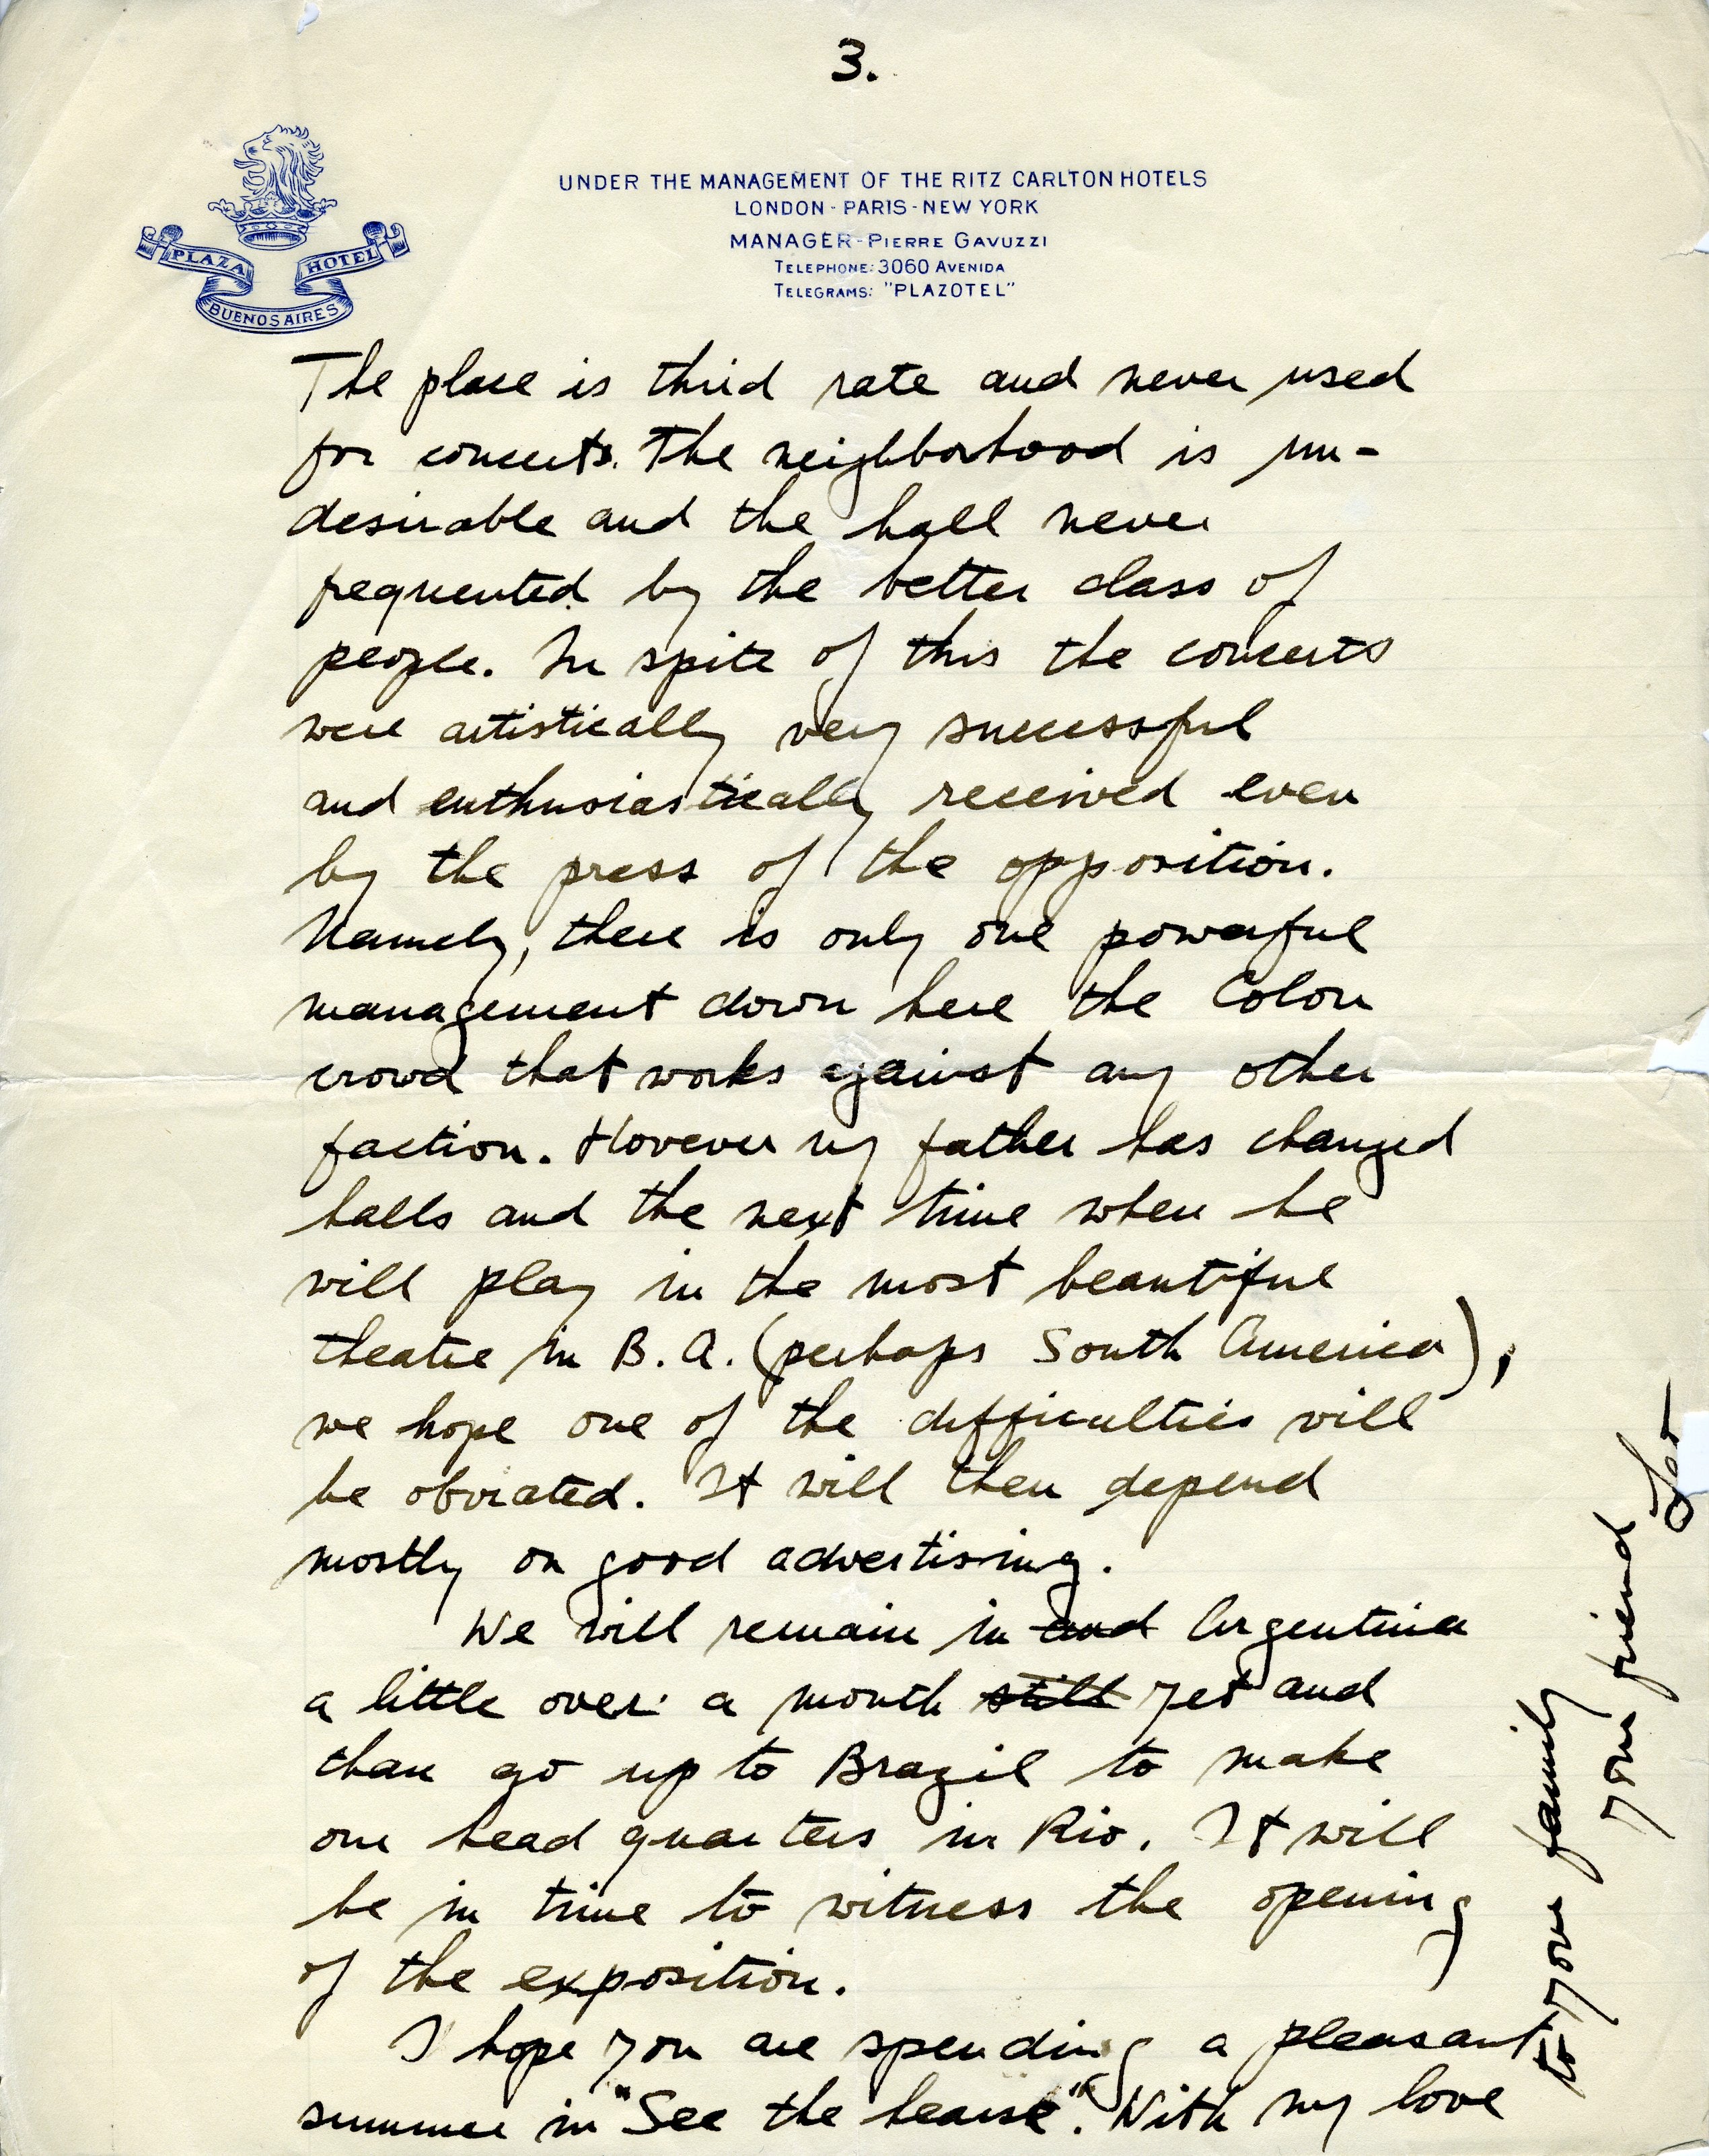 3.
PLAZA HOTEL
BUENOS AIRES
UNDER THE MANAGEMENT OF THE RITZ CARLTON HOTELS
LONDON - PARIS - NEW YORK
MANAGER - PIERRE GAVUZZI
TELEPHONE: 3060 AVENIDA
TELEGRAMS: "PLAZOTEL"
The place is third rate and never used
for concerts. The neighborhood is un-
desirable and the hall never
frequented by the better class of
people. In spite of this the concerts
were artistically very successful
and enthusiastically received even
by the press of the opposition.
Namely, there is only one powerful
management down here the Colon
crowd that works against any other
faction. Hovever my father has changed
halls and the next time when he
will play in the most beautiful
theatre in B. A. (perhaps South America),
we hope one of the difficulties will
be obviated. It will then depend
mostly on good advertising.
We will remain in and Argentina
a little over a month still yet and
than go up to Brazil to make
our head quarters in Rio. It will
be in time to witness the opening
of the exposition.
I hope you are spending a pleasant
summer in "See the hearse". With my love
to your family
your friend